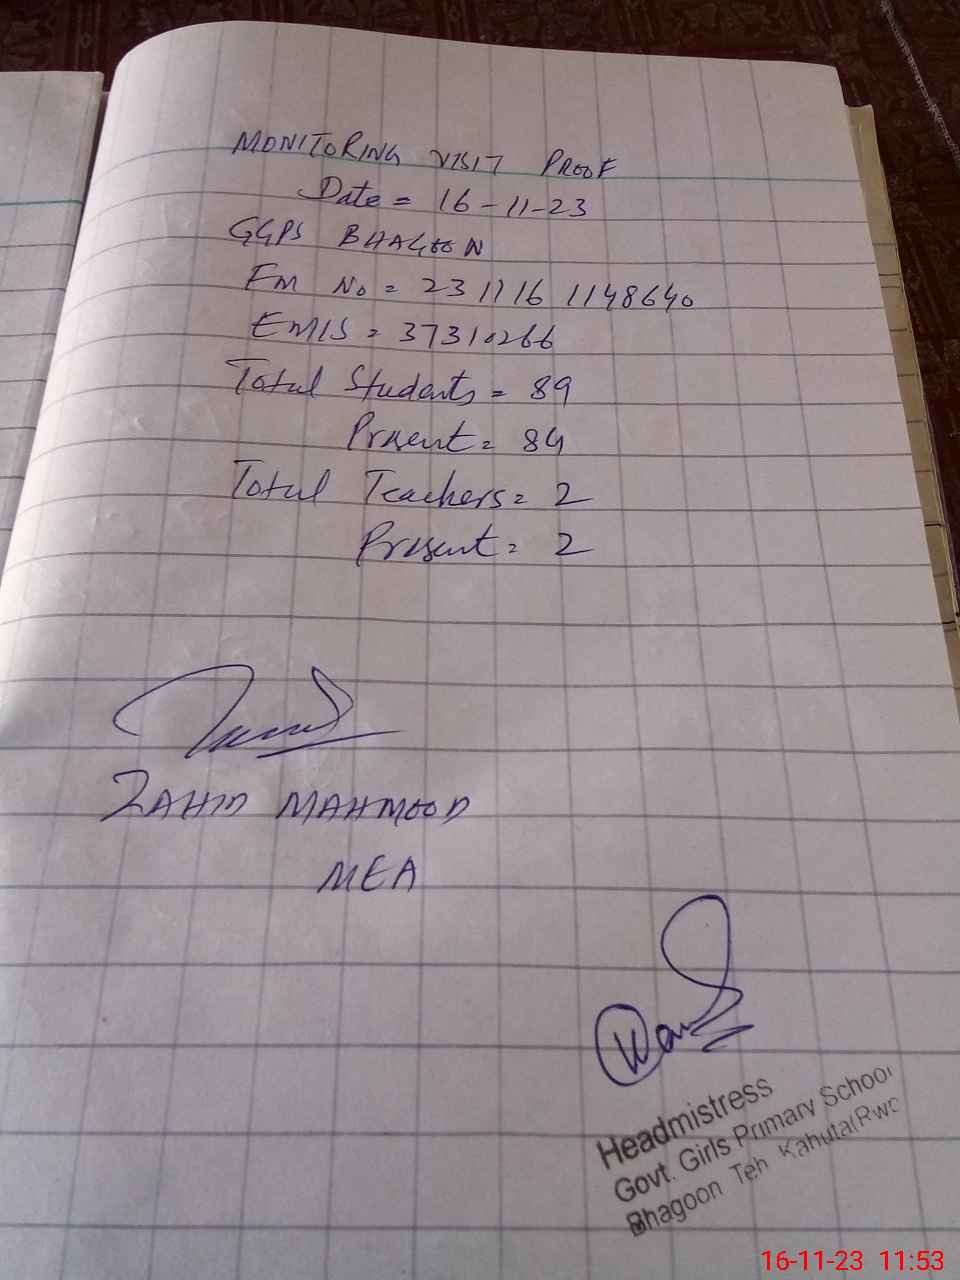 MONITORING VISIT PROOF
Date = 16-11-23
GGPS BHAGOON
FM No = 231116 1148640
EMIS = 37310266
Total Students = 89
Present = 84
Total Teachers = 2
Present = 2
ZAHID MAHMOOD
MEA
Headmistress
Govt. Girls Primary School
Bhagoon Teh Kahuta(Rwp
16-11-23 11:53